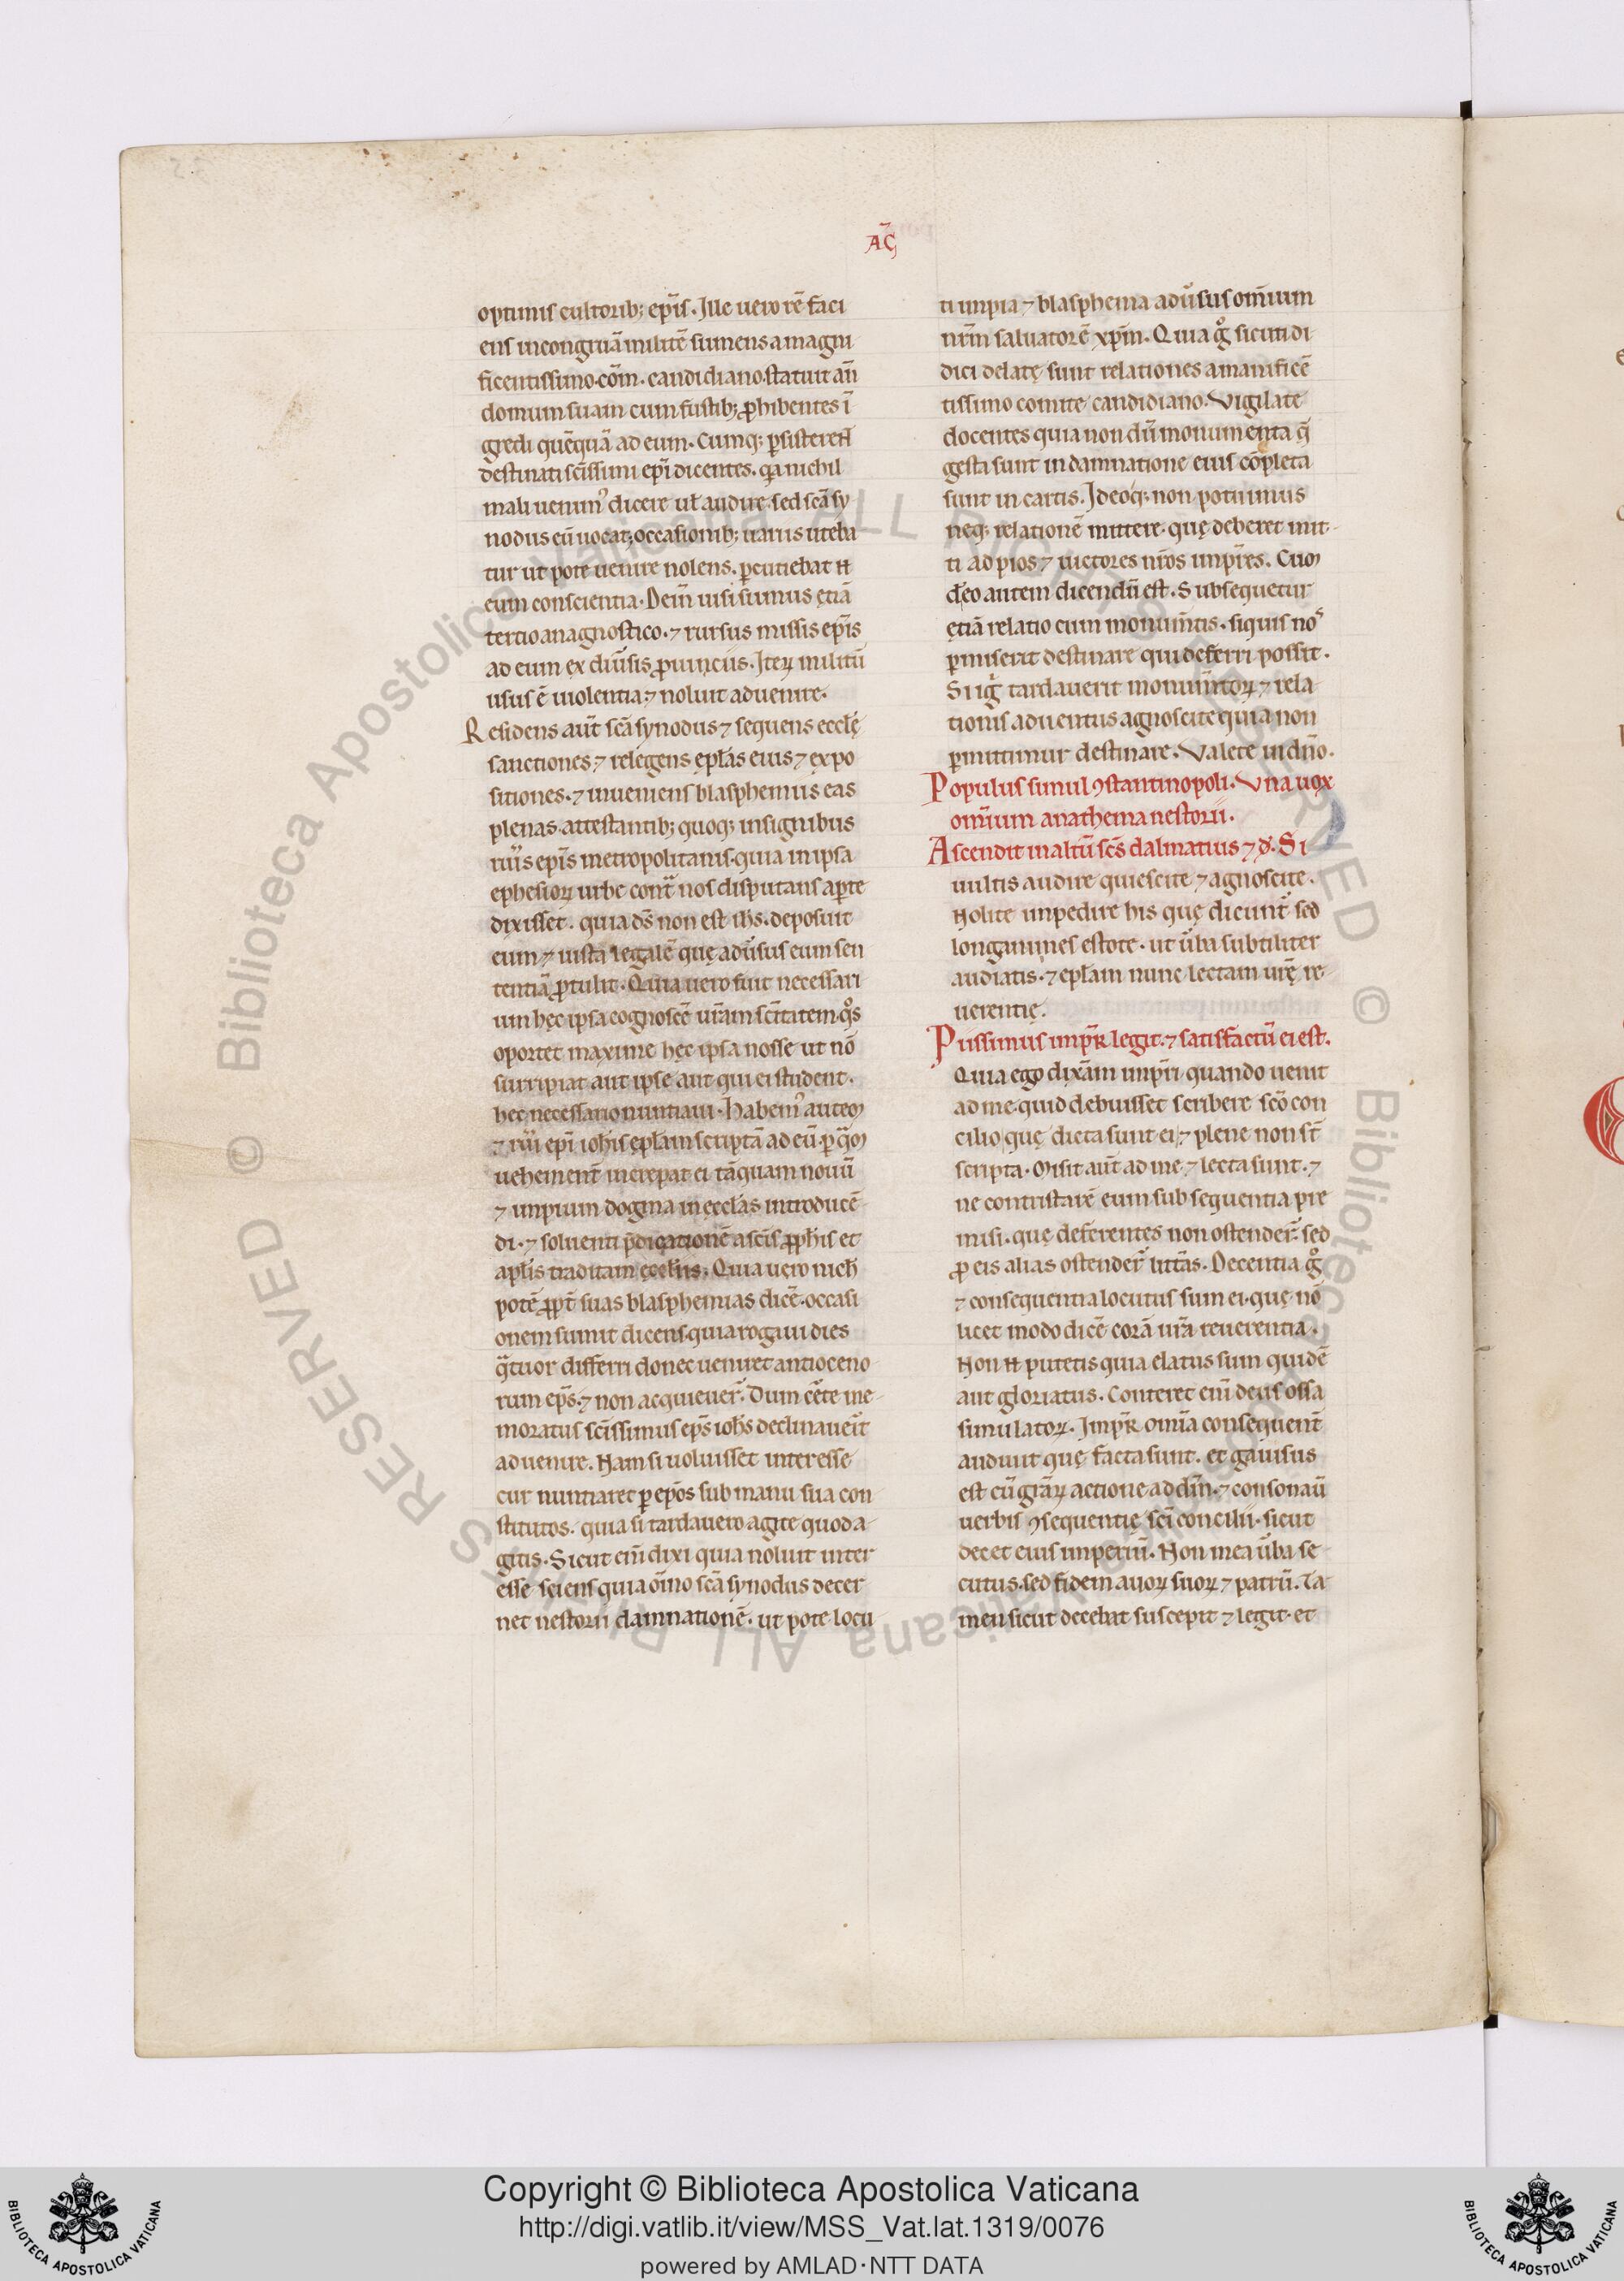 AC̄
optimis cultorib; ep̄is. Ille uero rē faci
ens incongruā militē sumens a magni
ficentissimo.com̄. candidiano.statuit an̄
domum suam cum fustib; ꝓhibentes ī
gredi quēquā ad eum. Cumq; ꝑsisteren̄
destinati sc̄issimi ep̄i dicentes. qa nichil
mali uenim᾽ dicere uł audire. sed sc̄a sy
nodus eū uocat; occasionib; uariis uteba
tur ut pote uenire nolens. ꝑcutiebat n̄
eum conscientia. Dein̄ uisi sumus ętiā
tertio anagnostico. ⁊ rursus missis ep̄is
ad eum ex diūsis ꝓuinciis. Iteꝝ militū
usus ē uiolentia; ⁊ noluit aduenire.
Residens aut̄ sc̄a synodus ⁊ sequens eccłę
sanctiones; ⁊ relegens ępłas eius ⁊ expo
sitiones. ⁊ inueniens blasphemiis eas
plenas. attestantib; quoq; insignibus
ep̄is metropolitanis. quia in ipsa
ephesioꝝ urbe cont̄ nos disputans aꝑte
dixisset. quia d̄s non est ih̄s. deposuit
eum ⁊ iusta legalē quę adūsus eum sen
tentiā ꝓtulit. Quia uero fuit necessari
um hęc ipsa cognoscē ur̄am sc̄itatem. q̊s
oportet maxime hęc ipsa nosse ut nō
surripiat aut ipse aut qui ei student.
hęc necessario nuntiaui. Habem᾽ autem
⁊ ep̄i ioh̄is ępłam scriptā ad eū. ꝑ quā
uehement̄ increpat ei tāquam nouū
⁊ impium dogma in ęccłas introducē
di. ⁊ soluenti p̄dicationē a sc̄is ꝓph̄is et
apłis traditam ęccłiis. Quia uero nich̄
potē ꝓpt̄ suas blasphemias dicē. occasi
onem sumit dicens. quia rogaui dies
q̄tuor differri donec ueniret antioceno
rum ep̄s. ⁊ non acquieuer̄. Dum cēte me
moratus sc̄issimus ep̄s ioh̄s declinauerit
aduenire. Nam si uoluisset interesse
cur nuntiaret ꝑ ep̄os sub manu sua con
stitutos. quia si tardauero agite quod a
gitis. Sicut eni dixi quia noluit inter
esse sciens quia om̄o sc̄a synodus decer
net nestorii damnationē. ut pote locu
ti impia ⁊ blasphema adūsus omnium
nr̄m saluatorē xp̄m. Quia g̊ sicuti di
dici delatę sunt relationes a manificē
tissimo comite candidiano. Vigilate
docentes quia non dū monumenta q̄
gesta sunt in damnatione eius cōpleta
sunt in cartis. Ideoq; non potuimus
neq; relationē mittere. quę deberet mit
ti ad pios ⁊ uictores nr̄os imp̄res. Cum
deo autem dicendū est. Subsequetur
ętiā relatio cum monumtis. siquis nos
ꝑmiserit destinare qui deferri possit.
Si ig̊ tardauerit monumtoꝝ ⁊ rela
tionis aduentus agnoscite quia non
ꝑmittimur destinare. Valete in dn̄o.
Populus simul ꝯstantinopoli. Vna uox
omnium anathema nestorii.
Ascendit in altū sc̄s dalmatius ⁊ d̄. Si
uultis audire quiescite ⁊ agnoscite.
Nolite impedire his quę dicunt̄ sed
longanimes estote. ut ūba subtiliter
audiatis. ⁊ epłam nunc lectam ur̄ę re
uerentię.
Piissimus imp̄r legit. ⁊ satisfactū ei est.
Quia ego dixām imp̄ri quando uenit
ad me. quid debuisset scribere sc̄o con
cilio. quę dicta sunt ei ⁊ plene non st̄
scripta. Misit aut̄ ad me ⁊ lecta sunt. ⁊
ne contristarē eum subsequentia pre
misi. quę deferentes non ostender̄. sed
ꝓ eis alias ostender̄ litt̄as. Decentia g̊
⁊ consequentia locutus sum ei. quę nō
licet modo dicē corā ur̄a reuerentia.
Non n̄ putetis quia elatus sum quidē
aut gloriatus. Conteret eni deus ossa
simulatoꝝ. Imp̄r omīa consequent̄
audiuit quę facta sunt. et gauisus
est cū gr̄aꝝ actione ad dm̄. ⁊ consonaū
uerbis ꝯsequentię sc̄i concilii. sicut
decet eius imperiū. Non mea ūba se
cutus. sed fidem auoꝝ suoꝝ ⁊ patrū. Ta
men sicut decebat suscepit ⁊ legit. et
© Biblioteca Apostolica Vaticana ALL RIGHTS RESERVED © Biblioteca Apostolica Vaticana ALL RIGHTS RESERVED
Copyright © Biblioteca Apostolica Vaticana
http://digi.vatlib.it/view/MSS_Vat.lat.1319/0076
powered by AMLAD·NTT DATA
BIBLIOTECA APOSTOLICA VATICANA
BIBLIOTECA APOSTOLICA VATICANA